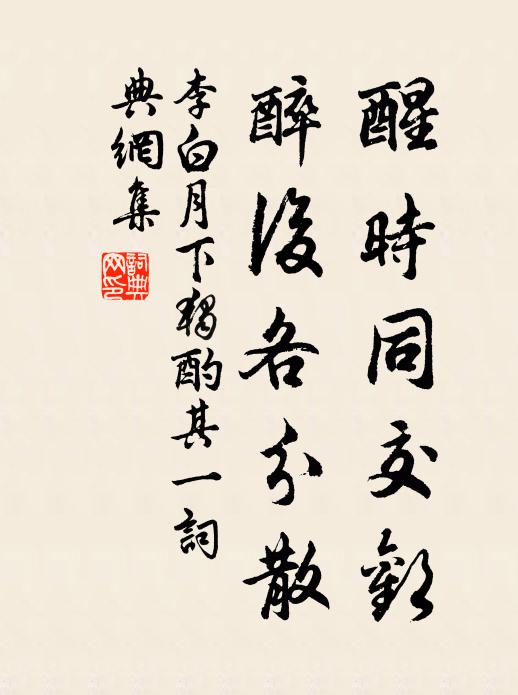 醒時同交歡
醉後各分散
李白月下獨酌其一詞
典網集
詞典網印